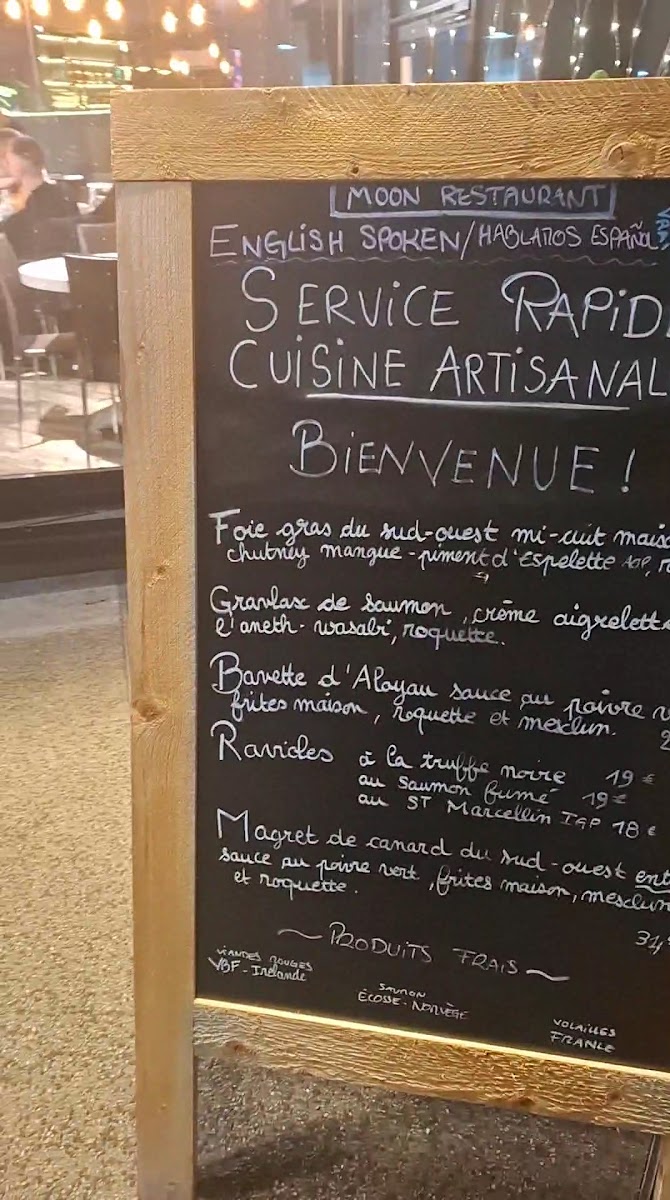 MOON RESTAURANT
ENGLISH SPOKEN/HABLAMOS ESPAÑOL
SERVICE RAPID
CUISINE ARTISANAL
BIENVENUE !
Foie gras du sud-ouest mi-cuit mais
chutney mangue - piment d'Espelette AOP,
Gravlax de saumon, crème aigrelett
l'aneth - wasabi, roquette.
Bavette d'Aloyau sauce au poivre v
frites maison, roquette et mesclun.
Ravioles à la truffe noire 19 €
au saumon fumé 19 €
au ST Marcellin IGP 18 €
Magret de canard du sud-ouest ent
sauce au poivre vert, frites maison, mesclun
et roquette.
31,
~ PRODUITS FRAIS ~
VIANDES ROUGES
VBF - Irelande
SAUMON
ÉCOSSE - NORVÈGE
VOLAILLES
FRANCE